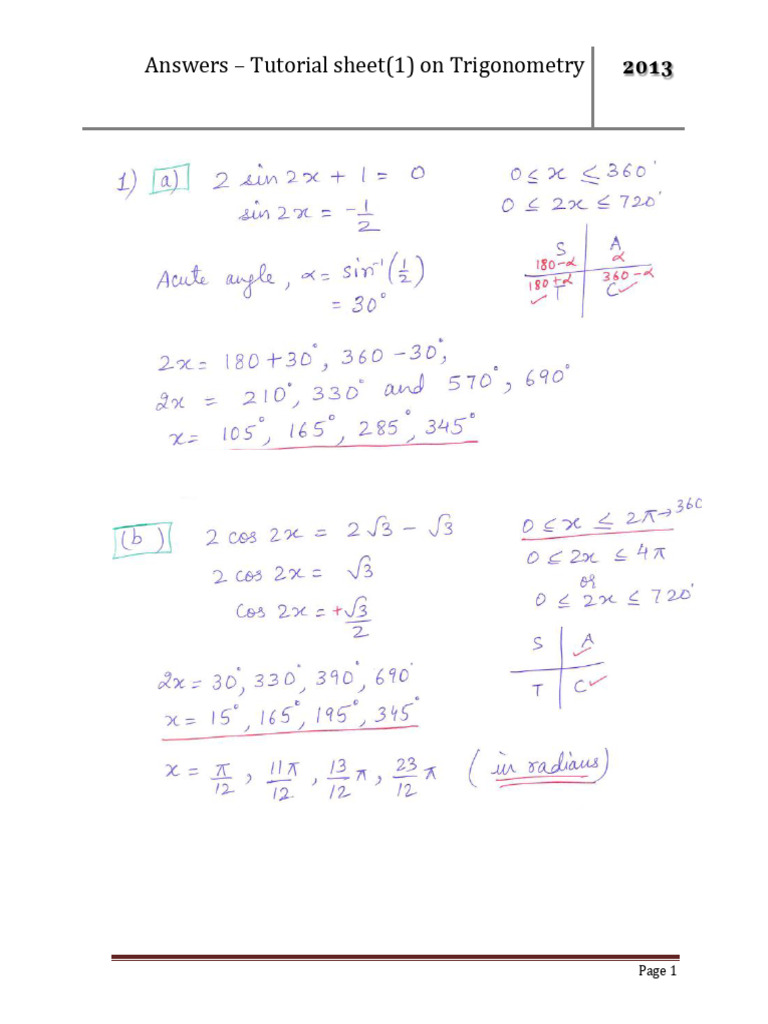 Answers – Tutorial sheet(1) on Trigonometry 2013
1) (a) 2 sin 2x + 1 = 0 0 ≤ x ≤ 360°
sin 2x = -1/2 0 ≤ 2x ≤ 720°
S A
180-α α
180+α 360-α
T C
Acute angle, α = sin⁻¹(1/2)
= 30°
2x = 180 + 30°, 360 - 30°,
2x = 210°, 330° and 570°, 690°
x = 105°, 165°, 285°, 345°
(b) 2 cos 2x = 2√3 - √3 0 ≤ x ≤ 2π → 360
2 cos 2x = √3 0 ≤ 2x ≤ 4π
or
cos 2x = +√3/2 0 ≤ 2x ≤ 720°
S A
T C
2x = 30°, 330°, 390°, 690°
x = 15°, 165°, 195°, 345°
x = π/12, 11π/12, 13/12 π, 23/12 π (in radians)
Page 1